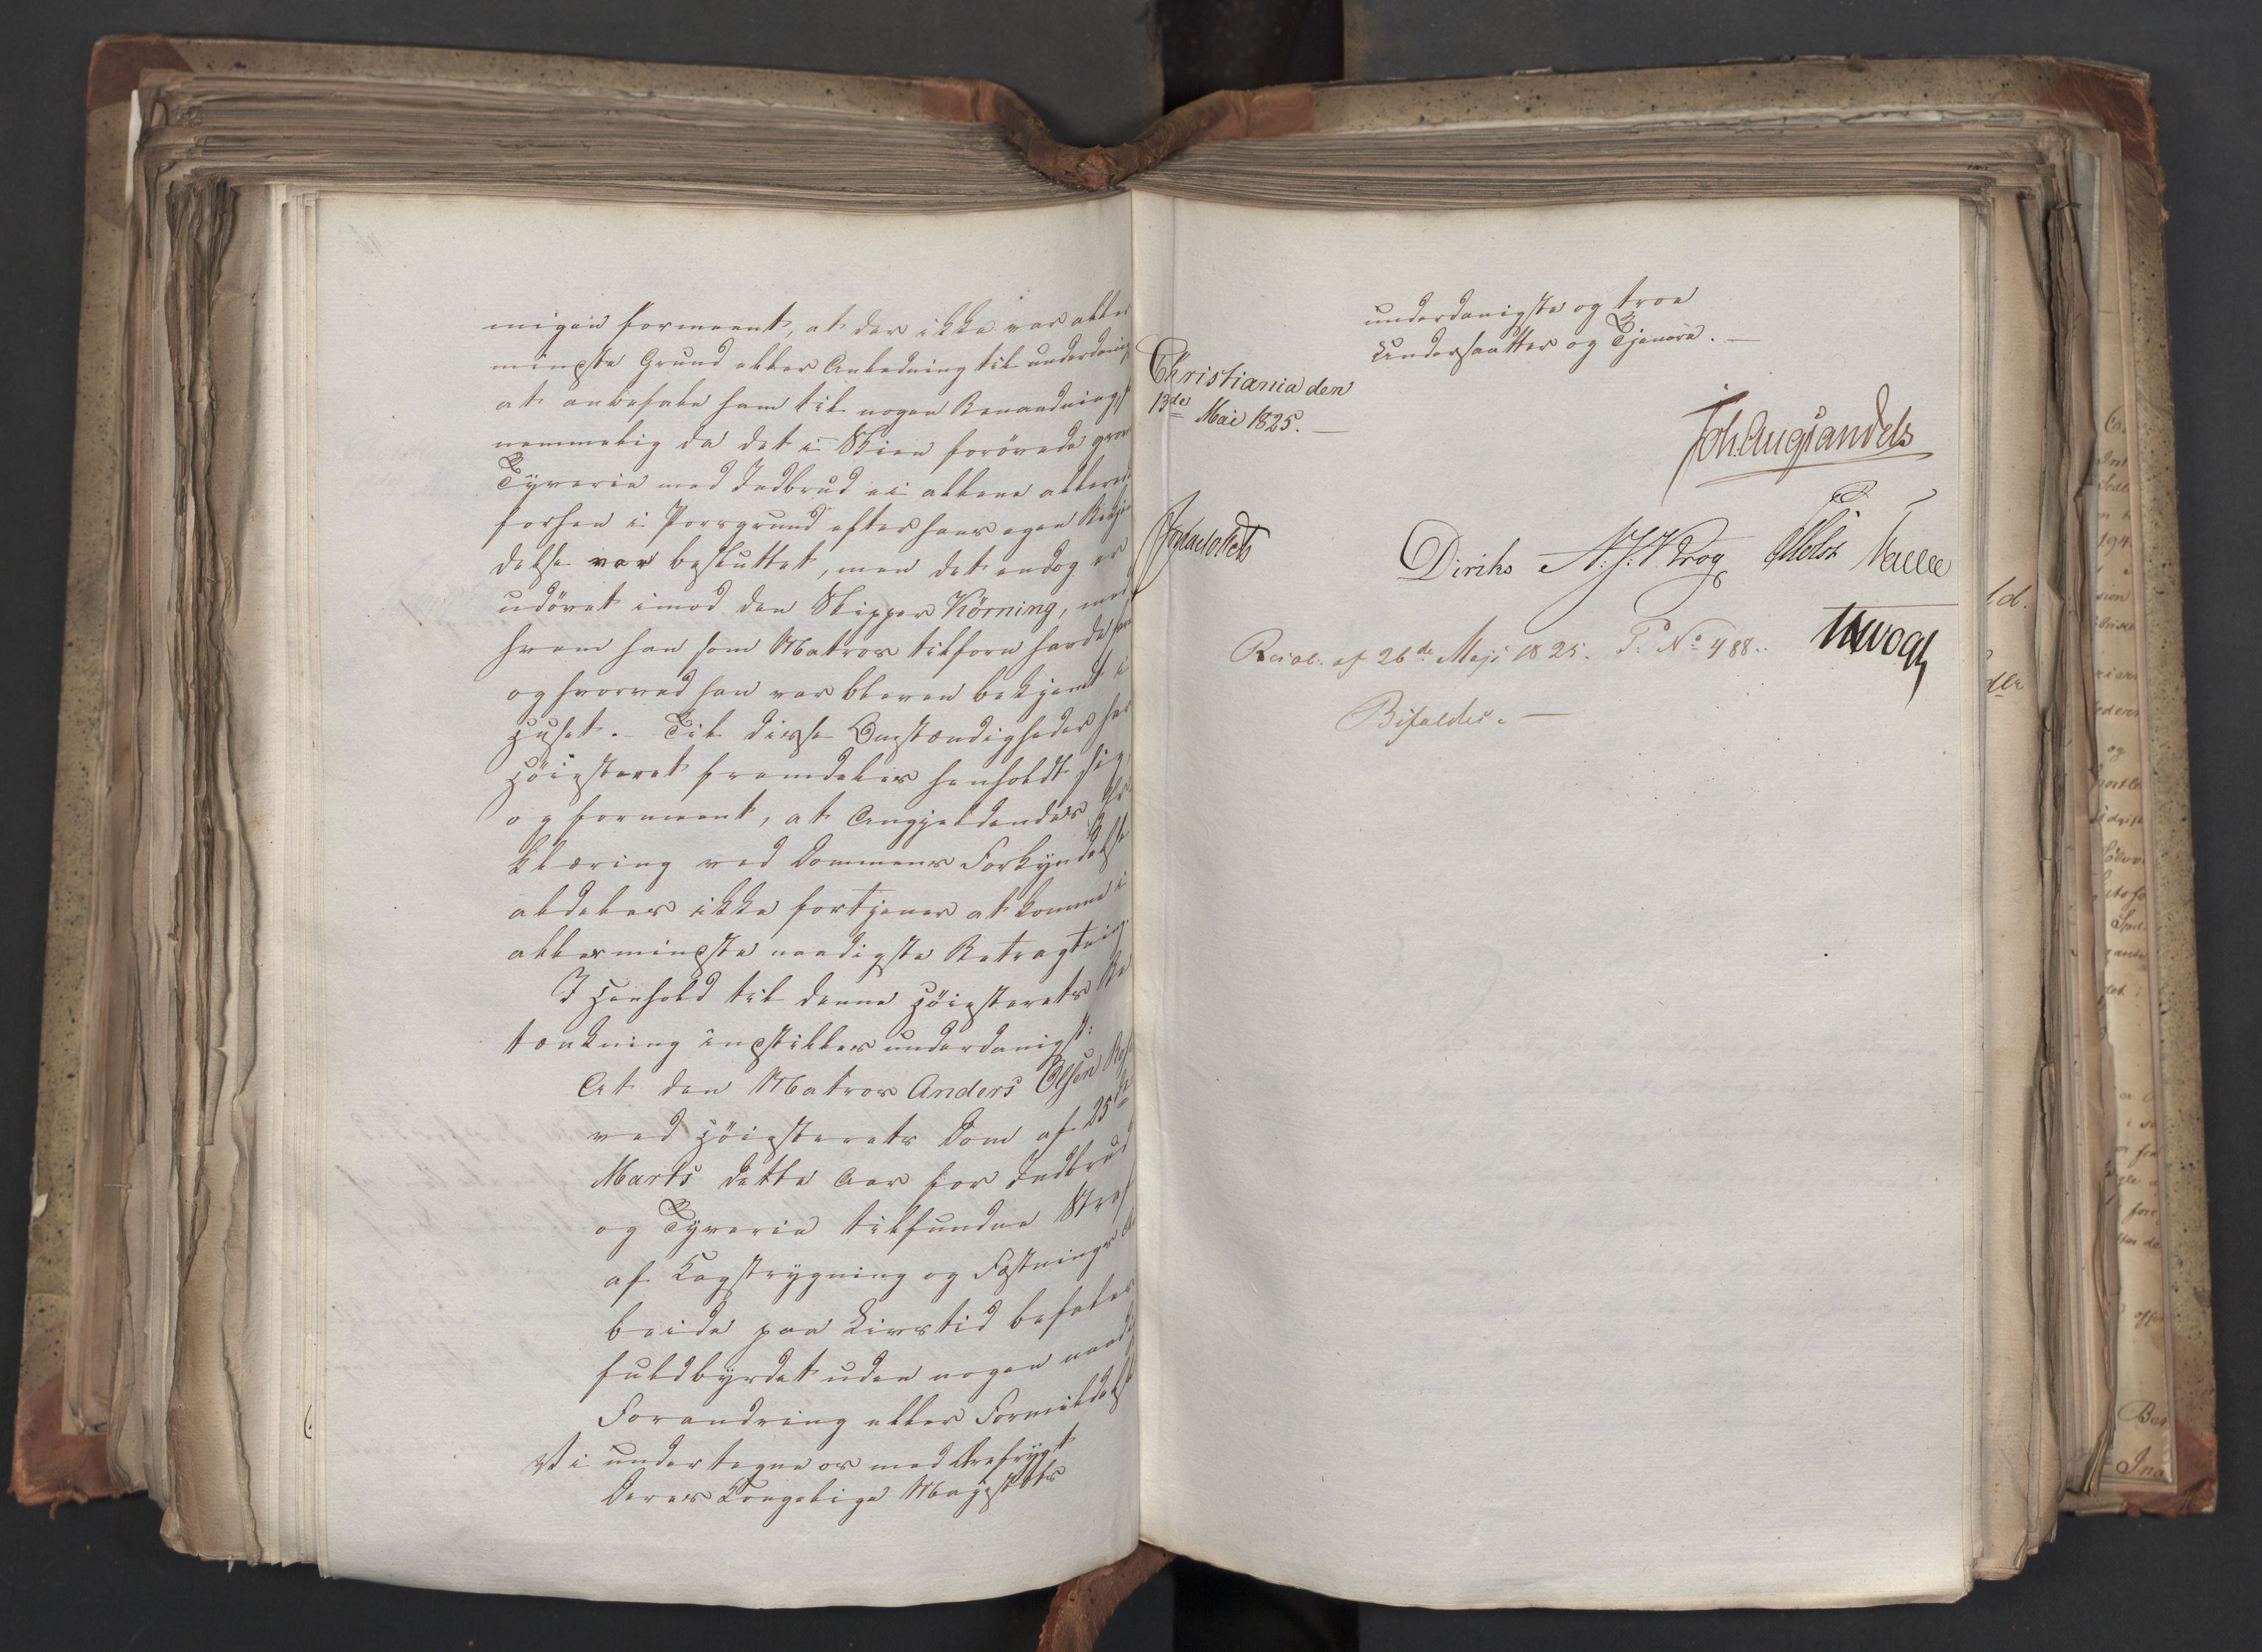 migen formeent, at der ikke var aller
mindste Grund eller Anledning til underdanigst
at anbefale ham til nogen Benaadning,
nemmelig da det i Skien forövede grove
Tyverie med Indbrud ei allene allerede
forhen i Porsgrund efter hans egen Bekjen
delse var besluttet, men det endog er
udövet imod den Skipper Körning, med
hvem han som Matros tilforn havde faret
og hvorved han var bleven bekjendt i
Huset. – Til disse Omstændigheder har
Höiesteret fremdeles henholdt sig,
og formeent, at Angjeldendes Er
klæring ved Dommens Forkyndelse
aldeles ikke fortjener at komme i
allermindste naadigste Betragtning.
I Henhold til denne Höiesterets Be
tænkning indstilles underdanigst:
At den Matros Anders Olsen
ved Höiesterets Dom af 25de
Marts dette Aar for Indbrud
og Tyverie tilfundne Straf
af Kagstrygning og Fæstnings Ar
beide paa Livstid befales
fuldbyrdet uden nogen naadig
Forandring eller Formildelse
Vi undertegne os med Ærefrygt
Deres Kongelige Majestæts
underdanigste og troe
Undersaatter og Tjenere. —
Christiania den
13de Mai 1825. —
Joh. Aug. Sandels
Diriks N. J. Krog Holst
Resol: af 26de Maji 1825. P: No 488.
Bifaldes. —